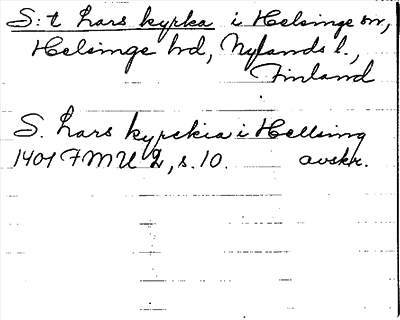 S:t Lars kyrka i Helsinge sn,
Helsinge hd, Nylands l.,
Finland
S. Lars kyrckia i Hellsing
1401 FMU 2, s. 10. avskr.